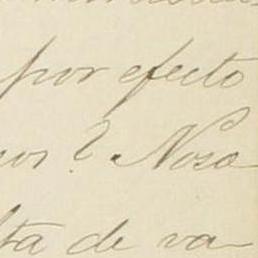 por efecto
os? Noso
lta de va